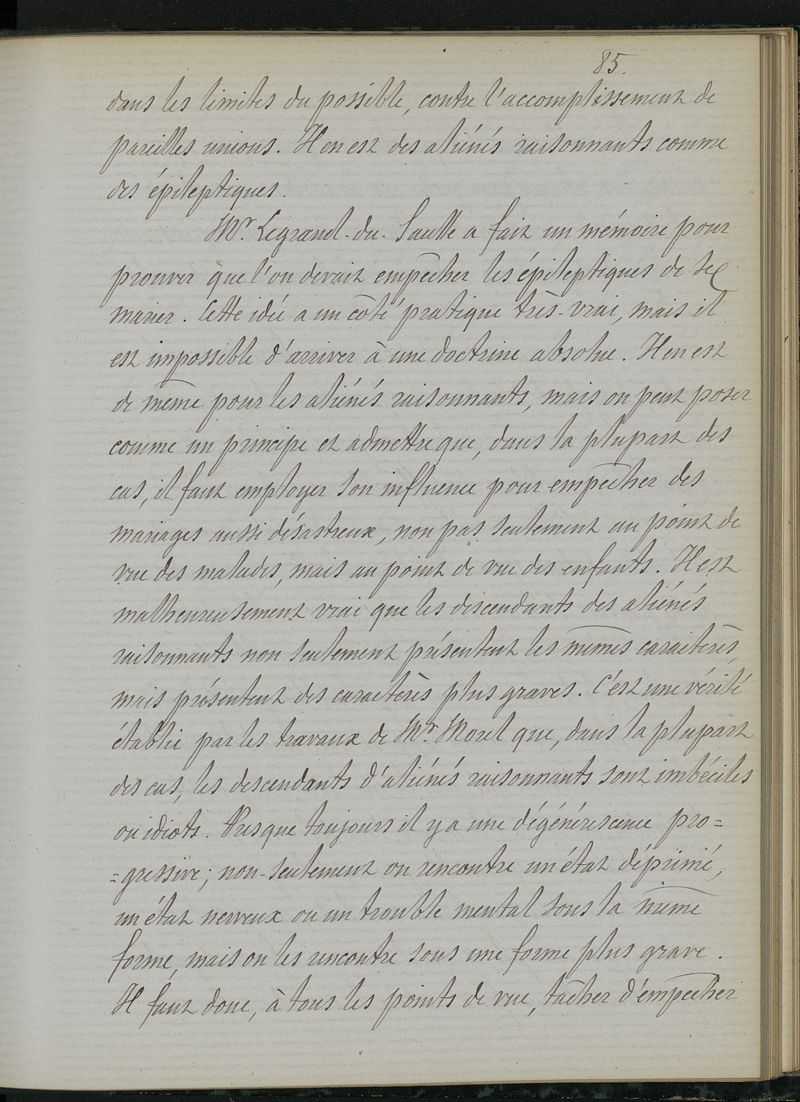 85.
dans les limites du possible, contre l'accomplissement de
pareilles unions. Il en est des aliénés raisonnants comme
des épileptiques.
Mr. Legrand-du-Saulle a fait un mémoire pour
prouver que l'on devait empêcher les épileptiques de se
marier. Cette idée a un côté pratique très-vrai, mais il
est impossible d'arriver à une doctrine absolue. Il en est
de même pour les aliénés raisonnants, mais on peut poser
comme un principe et admettre que, dans la plupart des
cas, il faut employer son influence pour empêcher des
mariages aussi désastreux, non pas seulement au point de
vue des malades, mais au point de vue des enfants. Il est
malheureusement vrai que les descendants des aliénés
raisonnants non seulement présentent les mêmes caractères,
mais présentent des caractères plus graves. C'est une vérité
établie par les travaux de Mr. Morel que, dans la plupart
des cas, les descendants d'aliénés raisonnants sont imbéciles
ou idiots. Presque toujours il y a une dégénérescence pro=
=gressive; non-seulement on rencontre un état déprimé,
un état nerveux ou un trouble mental sous la même
forme, mais on les rencontre sous une forme plus grave.
Il faut donc, à tous les points de vue, tâcher d'empêcher